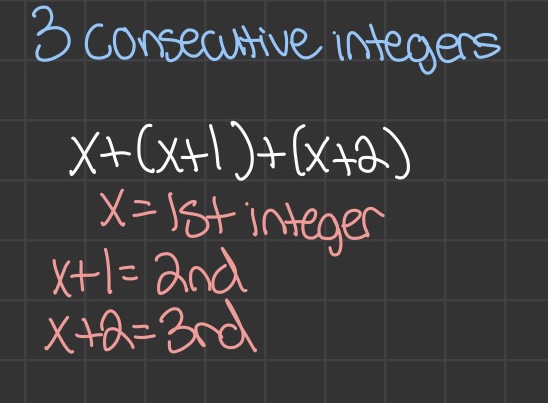 3 consecutive integers
x+(x+1)+(x+2)
x=1st integer
x+1=2nd
x+2=3rd